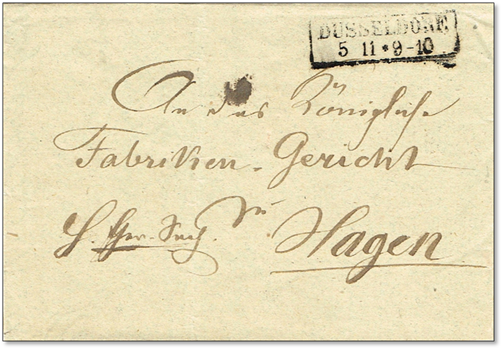 DUSSELDORF
5 11 * 9-10
An das Königliche
Fabriken-Gericht
H. Ger. Sach. zu
Hagen